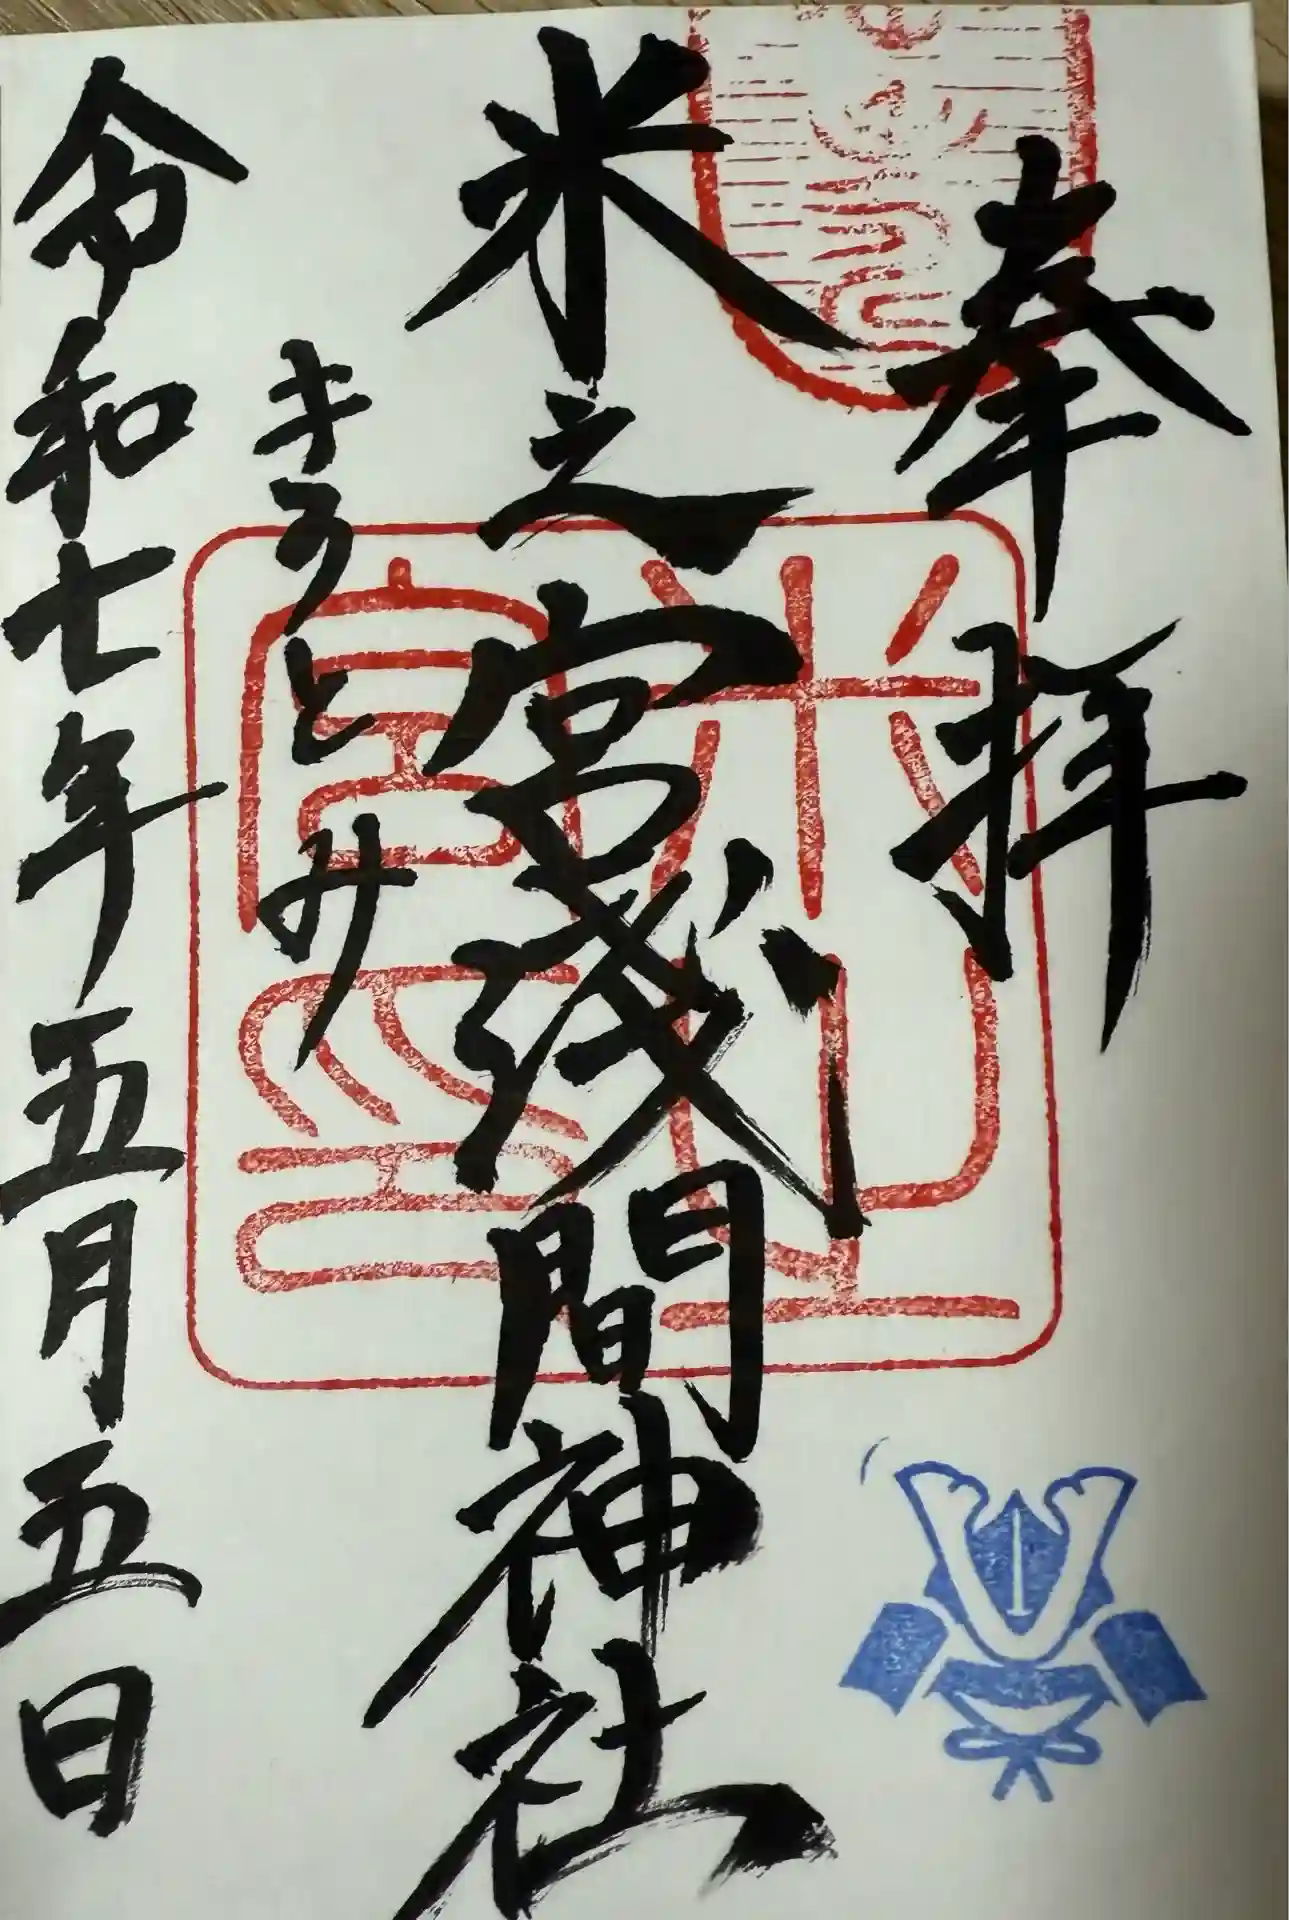 奉拝
米之宮淺間神社
きのとみ
令和七年五月五日
米之
宮印